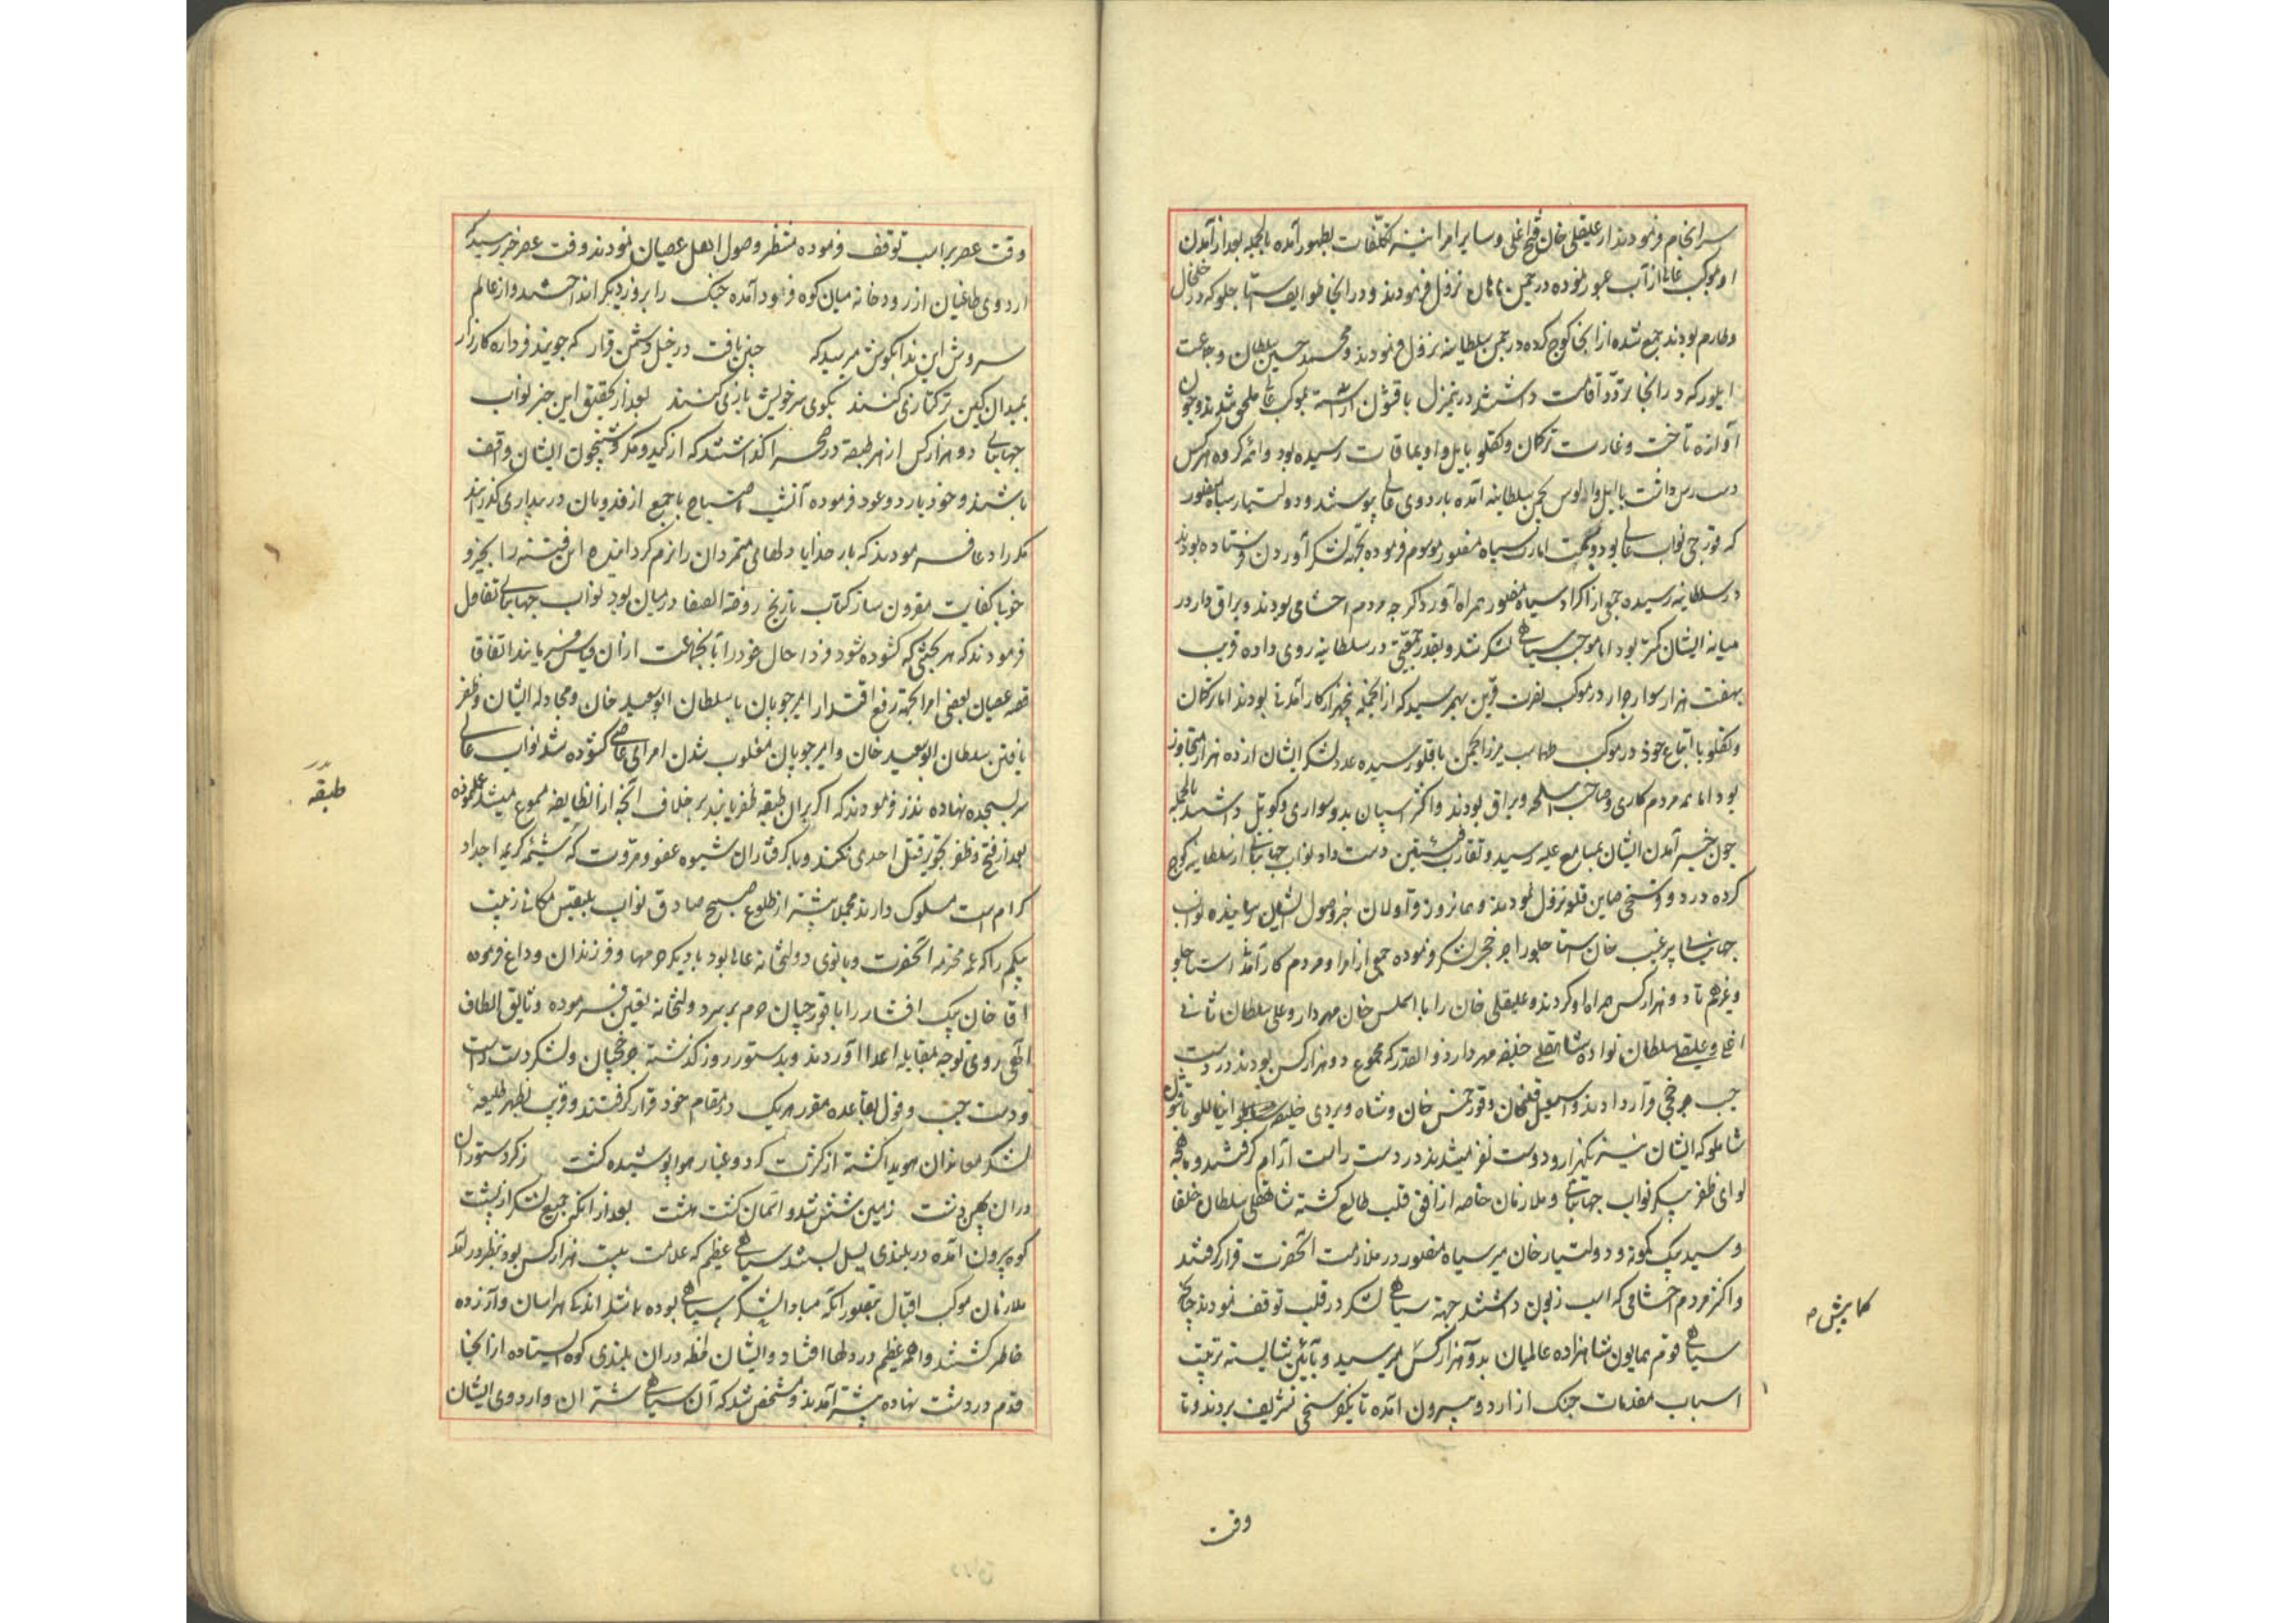 سرانجام فرمودند از علیقلی خان فتح اغلی و سایر امرا نیز تکلفات بظهور آمده بالجمله بعد از آمدن
او موکب عالی از آب عبور نموده در چمن نزول فرمودند و در آنجا طوایف استاجلو که در خلخال
و طارم بودند جمع شده از آنجا کوچ کرده در چمن سلطانیه نزول فرمودند و محمد حسین سلطان و جماعت
که در آنجا اقامت داشتند در منزل با قشون آراسته بموکب عالی ملحق شدند و چون
آوازه تاخت و غارت ترکمان و تکلو بایل و اویماقات رسیده بود هر کس
دست رس داشت با ایل و الوس بچمن سلطانیه آمده باردوی عالی پیوستند و دولتیار سیاه منصور
که قورچی نواب عالی بود و بجهت امارت سیاه منصور موسوم فرموده بجهة لشکر آوردن فرستاده بودند
در سلطانیه رسیده جمعی از اکراد سیاه منصور همراه آورد اگرچه مردم احشامی بودند و یراق دار در
میانه ایشان کمتر بود اما موجب سیاهی لشکر شد و بقدر جمعیتی در سلطانیه روی داده قریب
بهفت هزار سوار جرار در موکب نصرت قرین بهم رسید که از آنجمله پنجهزار کار آمدنی بودند اما ترکمان
و تکلو با اتباع خود در موکب طهماسب میرزا رسیده عدد لشکر ایشان از ده هزار متجاوز
بود اما همه مردم کاری و صاحب اسلحه و یراق بودند و اکثر اسپان بدو سواری و کوتل داشتند بالجمله
چون خبر آمدن ایشان بمسامع علیه رسید و تقارب فئتین دست داد نواب جهانبانی از سلطانیه کوچ
کرده در دو فرسخی صاین قلعه نزول نمودند و همانروز قراولان خبر وصول ایشان رسانیده نواب
جهانبانی پیر غیب خان استاجلو را چرخچی لشکر نموده جمعی از امرا و مردم کار آمدنی استاجلو
و غیرهم تا دو هزار کس همراه او کردند و علیقلی خان را با اسلمس خان مهردار و علی سلطان ثانی
اغلی و علیقلی سلطان نواده شاهقلی خلیفه مهردار ذوالقدر که مجموع دو هزار کس بودند در دست
چپ چرخچی قرار دادند و اسمعیل قلیخان و قورخمس خان و شاه ویردی خلیفه اینانلو با قشون
شاملو که ایشان نیز یکهزار و دویست نفر میشدند در دست راست آرام گرفتند و ماهچه
لوای ظفر پیکر نواب جهانبانی و ملازمان خاصه از افق قلب طالع گشته شاهقلی سلطان خلفا
و سید بیک کمونه و دولتیار خان میر سیاه منصور در ملازمت آنحضرت قرار گرفتند
و اکثر مردم احشامی که اسب زبون داشتند جهة سیاهی لشکر در قلب توقف نمودند چنانچه
سیاهی قوم همایون شاهزاده عالمیان بدو هزار کس میرسید و بآیین شایسته ترتیب
اسباب مقدمات جنگ از اردو بیرون آمده تا یکفرسخی تشریف بردند و تا
کمابیش ص
وقت
وقت عصر بر اسب توقف فرموده منتظر وصول اهل عصیان نمودند وقت عصر خبر رسید که
اردوی طاغیان از رودخانه میان کوه فرود آمده جنگ را بروز دیگر انداختند و از عالم
سروش این ندا بگوش میرسید که چنین یافت در خیل دشمن قرار که جویند فردا ره کارزار
بمیدان کین ترکتازی کنند بگوی سر خویش بازی کنند بعد از تحقیق این خبر نواب
جهانبانی دو هزار کس از هر طبقه در صحرا گذاشتند که از کید و مکر و شبیخون ایشان واقف
باشند و خود باردو عود فرموده آنشب احتیاج با جمع از فدویان در بیداری گذرانیدند
مکرر ادعا فرمودند که بار خدایا دلهای متمردان را نرم گردانیده این فتنه را بخیر و
خوبا کفایت مقرون ساز کتاب تاریخ روضة الصفا در میان بود نواب جهانبانی تفاؤل
فرمودند که هر بحثی که گشوده شود فردا حال خود را با آنجماعت از آن قیاس فرمایند اتفاقا
قصه عصیان بعضی امرا بجهة رفع اقتدار امیر چوپان با سلطان ابو سعید خان و مجادله ایشان و ظفر
یافتن سلطان ابو سعید خان و امیر چوپان و مغلوب شدن امرای عاصی گشوده شد نواب عالی
سر بسجده نهاده نذر فرمودند که اگر بر آن طبقه ظفر یابند بر خلاف آنچه از آنطایفه مسموع میشد عمل نموده
بعد از فتح و ظفر تجویز قتل احدی نکنند و با گرفتاران شیوه عفو و مروت که شیمه کریمه اجداد
کرام است مسلوک دارند مجملا پیشتر از طلوع صبح صادق نواب بلقیس مکانی زینب
بیگم را که عمه محترمه آنحضرت و بانوی دولتخانه عالی بود با دیگر حرمها و فرزندان وداع فرموده
اقا خان بیک افشار را با قورچیان حرم بر سر دولتخانه تعیین فرموده وثایق الطاف
الهی روی توجه بمقابله اعدا آوردند و بدستور روز گذشته چرخچیان و لشکر دست راست
و دست چپ و قول بقاعده مقرر هر یک در مقام خود قرار گرفتند و قریب بظهر طلیعه
لشکر معاندان هویدا گشته از کثرت گرد و غبار هوا پوشیده گشت ز گرد ستوران
در آن پهن دشت زمین شش شد و آسمان گشت هشت بعد از آنکه جمیع لشکر از پشت
کوه بیرون آمده در بلندی پسل بستند سیاهی عظیم که علامت بیست هزار کس بود بنظر درآمد
ملازمان موکب اقبال بتصور آنکه مبادا لشکر سپاهی بوده باشد اندک هراسان و آزرده
خاطر گشتند واهمه عظیم در دلها افتاد و ایشان لحظه در آن بلندی کوه ایستاده از آنجا
قدم در دشت نهاده پیشتر آمدند و مشخص شد که آن سیاهی شتران و اردوی ایشان
طبقه